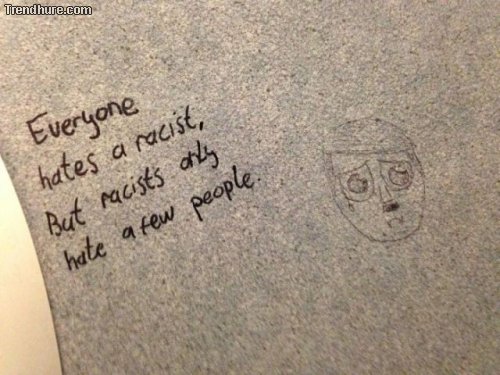 Trendhure.com
Everyone
hates a racist,
But racists only
hate a few people.